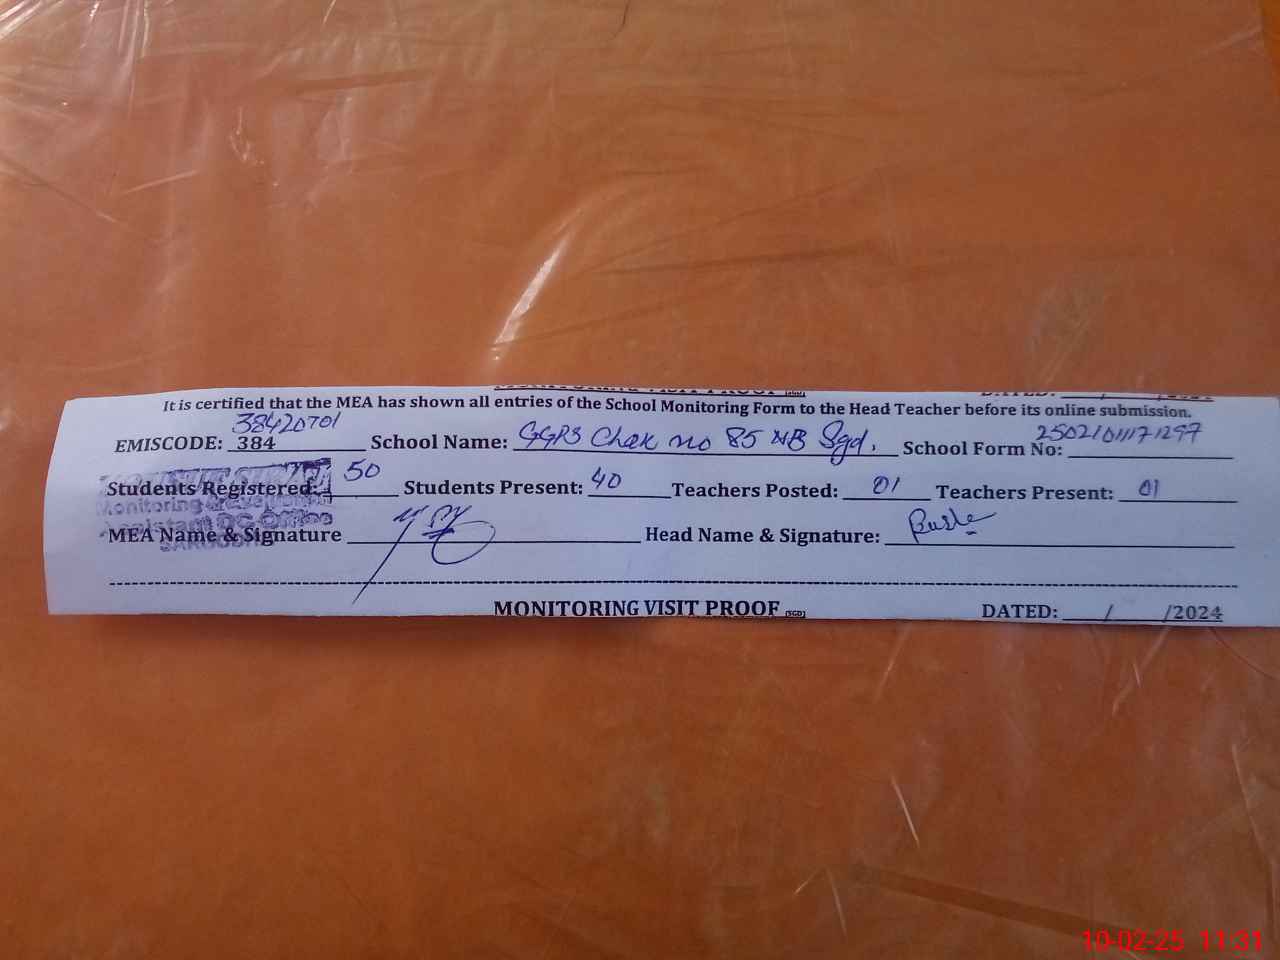 MONITORING VISIT PROOF [SGD] DATED: / /2024
It is certified that the MEA has shown all entries of the School Monitoring Form to the Head Teacher before its online submission.
38420701
EMISCODE: 384 School Name: GGPS Chak no 85 NB Sgd. School Form No: 25021011171297
Students Registered: 50 Students Present: 40 Teachers Posted: 01 Teachers Present: 01
Monitoring & Evaluation
Assistant DC Office
SARGODHA
MEA Name & Signature Head Name & Signature:
MONITORING VISIT PROOF [SGD] DATED: / /2024
10-02-25 11:31